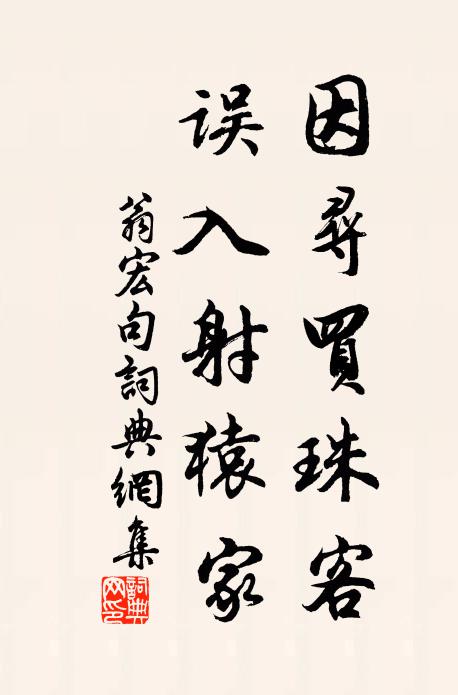 因尋買珠客
误入射猿家
翁宏句詞典網集
詞典網印